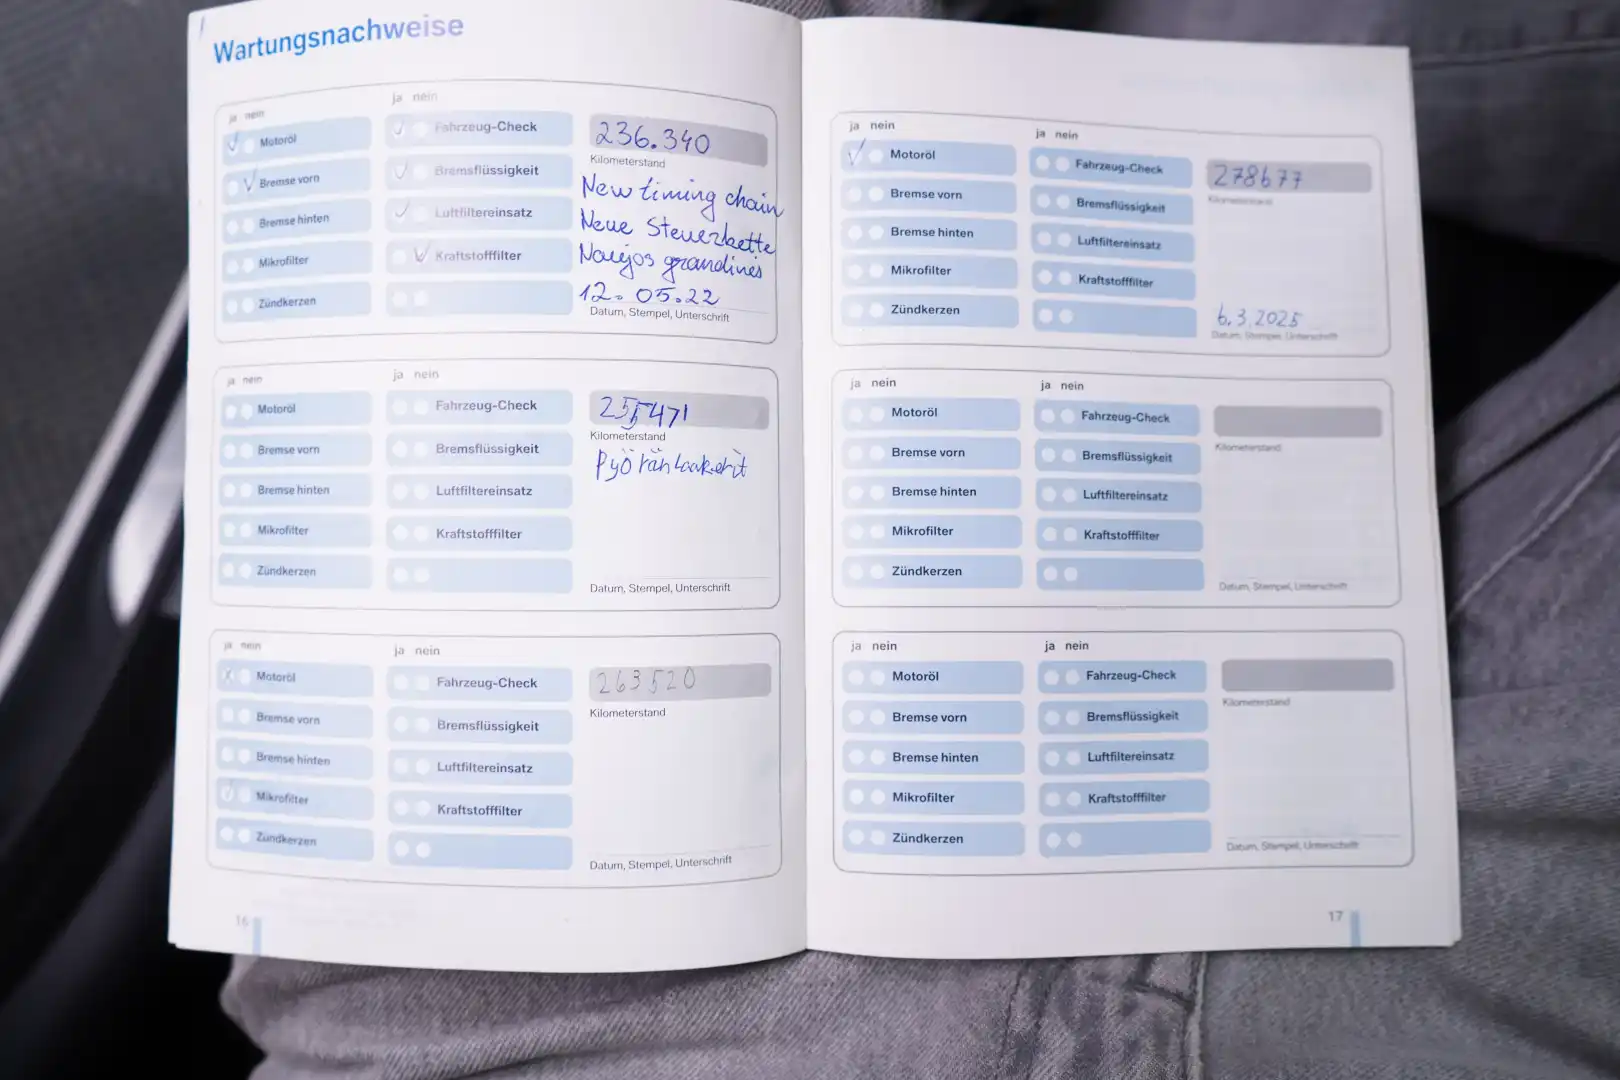 Wartungsnachweise
ja nein
Motoröl
Bremse vorn
Bremse hinten
Mikrofilter
Zündkerzen
ja nein
Fahrzeug-Check
Bremsflüssigkeit
Luftfiltereinsatz
Kraftstofffilter
236.340
Kilometerstand
New timing chain
Neue Steuerkette
Naujos grandinės
12.05.22
Datum, Stempel, Unterschrift
ja nein
Motoröl
Bremse vorn
Bremse hinten
Mikrofilter
Zündkerzen
ja nein
Fahrzeug-Check
Bremsflüssigkeit
Luftfiltereinsatz
Kraftstofffilter
255471
Kilometerstand
Pyöränlaakerit
Datum, Stempel, Unterschrift
ja nein
Motoröl
Bremse vorn
Bremse hinten
Mikrofilter
Zündkerzen
ja nein
Fahrzeug-Check
Bremsflüssigkeit
Luftfiltereinsatz
Kraftstofffilter
263520
Kilometerstand
Datum, Stempel, Unterschrift
16
ja nein
Motoröl
Bremse vorn
Bremse hinten
Mikrofilter
Zündkerzen
ja nein
Fahrzeug-Check
Bremsflüssigkeit
Luftfiltereinsatz
Kraftstofffilter
278677
Kilometerstand
6.3.2025
Datum, Stempel, Unterschrift
ja nein
Motoröl
Bremse vorn
Bremse hinten
Mikrofilter
Zündkerzen
ja nein
Fahrzeug-Check
Bremsflüssigkeit
Luftfiltereinsatz
Kraftstofffilter
Kilometerstand
Datum, Stempel, Unterschrift
ja nein
Motoröl
Bremse vorn
Bremse hinten
Mikrofilter
Zündkerzen
ja nein
Fahrzeug-Check
Bremsflüssigkeit
Luftfiltereinsatz
Kraftstofffilter
Kilometerstand
Datum, Stempel, Unterschrift
17